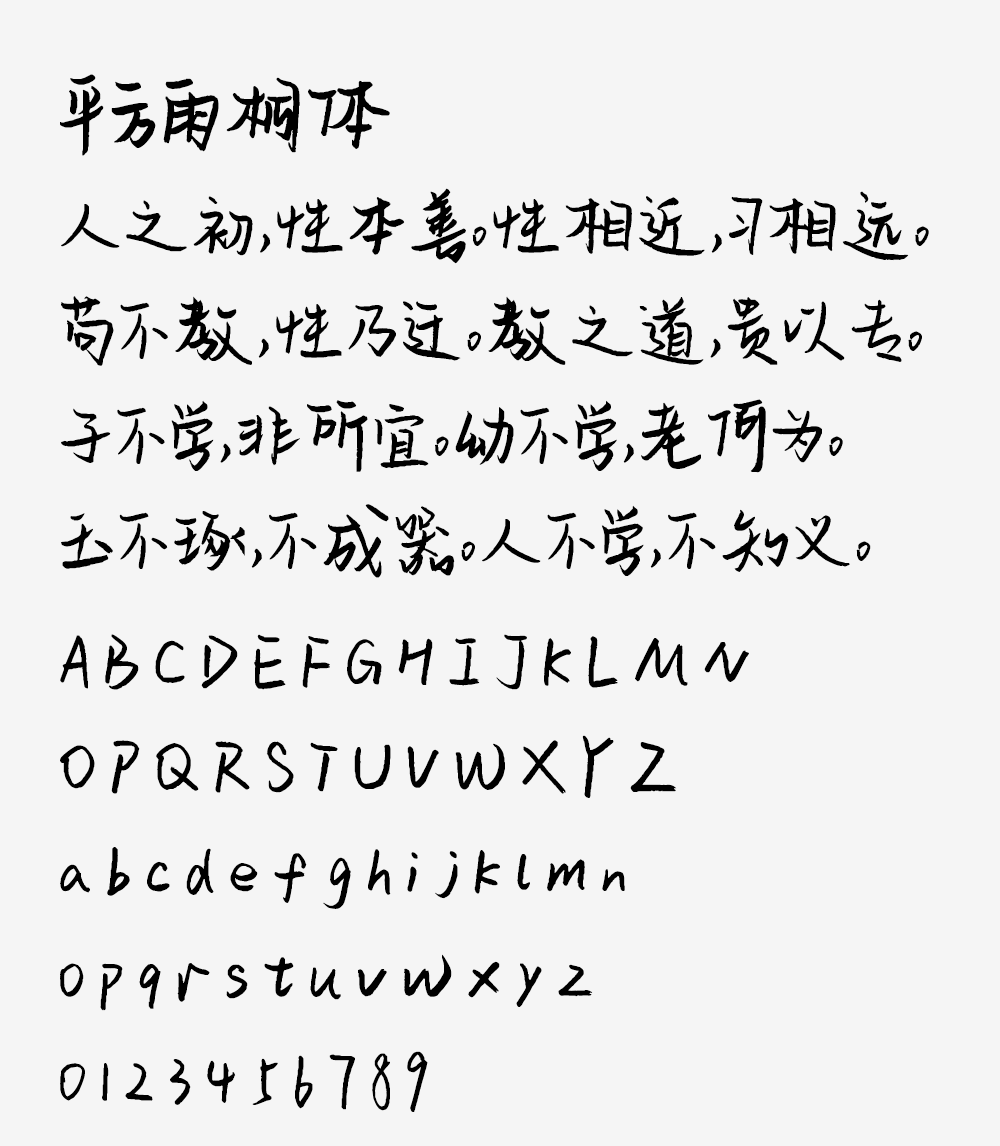 平方雨桐体
人之初,性本善。性相近,习相远。
苟不教,性乃迁。教之道,贵以专。
子不学,非所宜。幼不学,老何为。
玉不琢,不成器。人不学,不知义。
A B C D E F G H I J K L M N
O P Q R S T U V W X Y Z
a b c d e f g h i j k l m n
o p q r s t u v w x y z
0 1 2 3 4 5 6 7 8 9